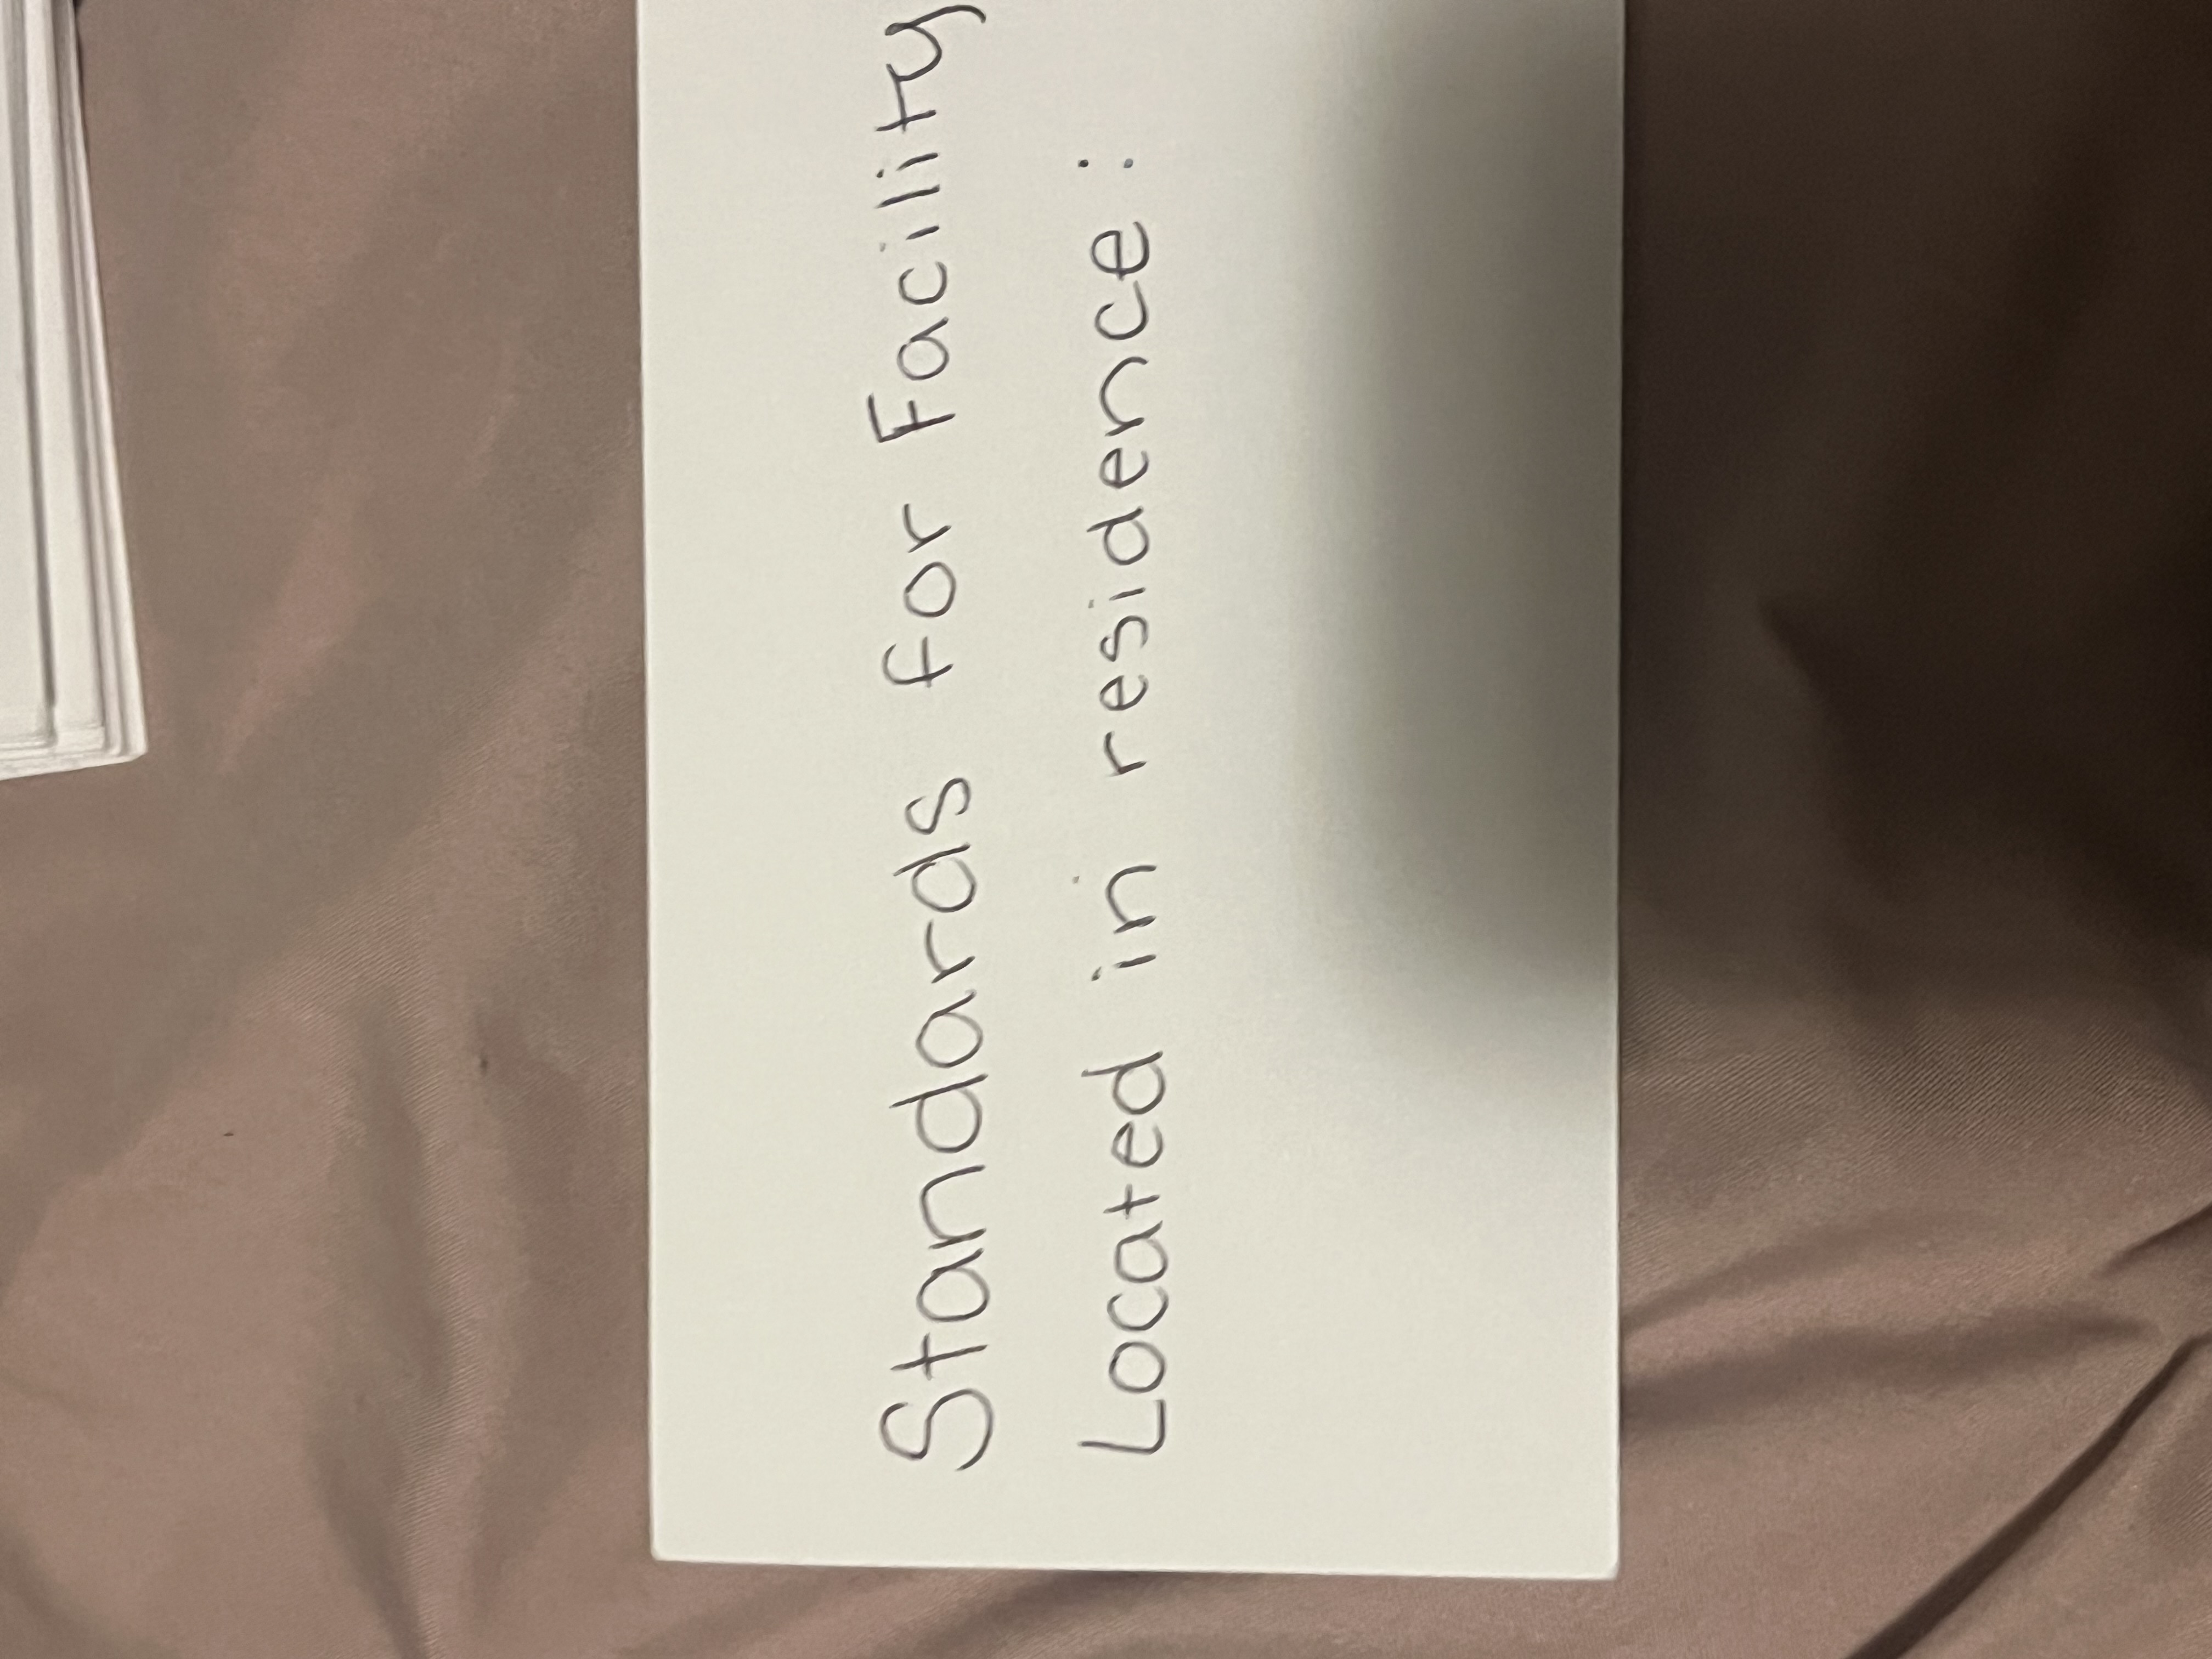 Standards for Facility
Located in residence :